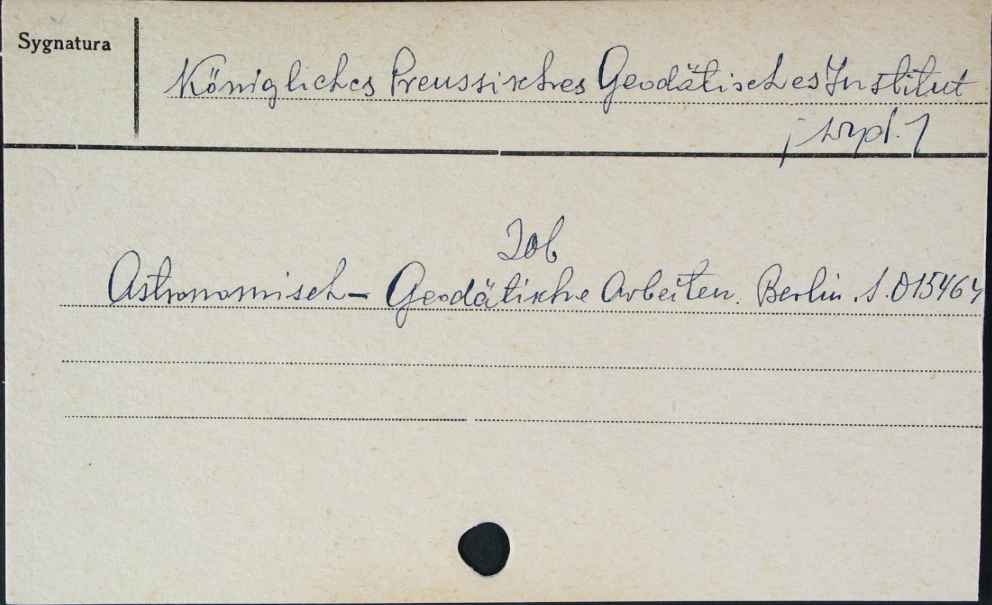 Sygnatura
Königliches Preussisches Geodätisches Institut
/ wyd. /
Zob
Astronomisch - Geodätische Arbeiten. Berlin. S.